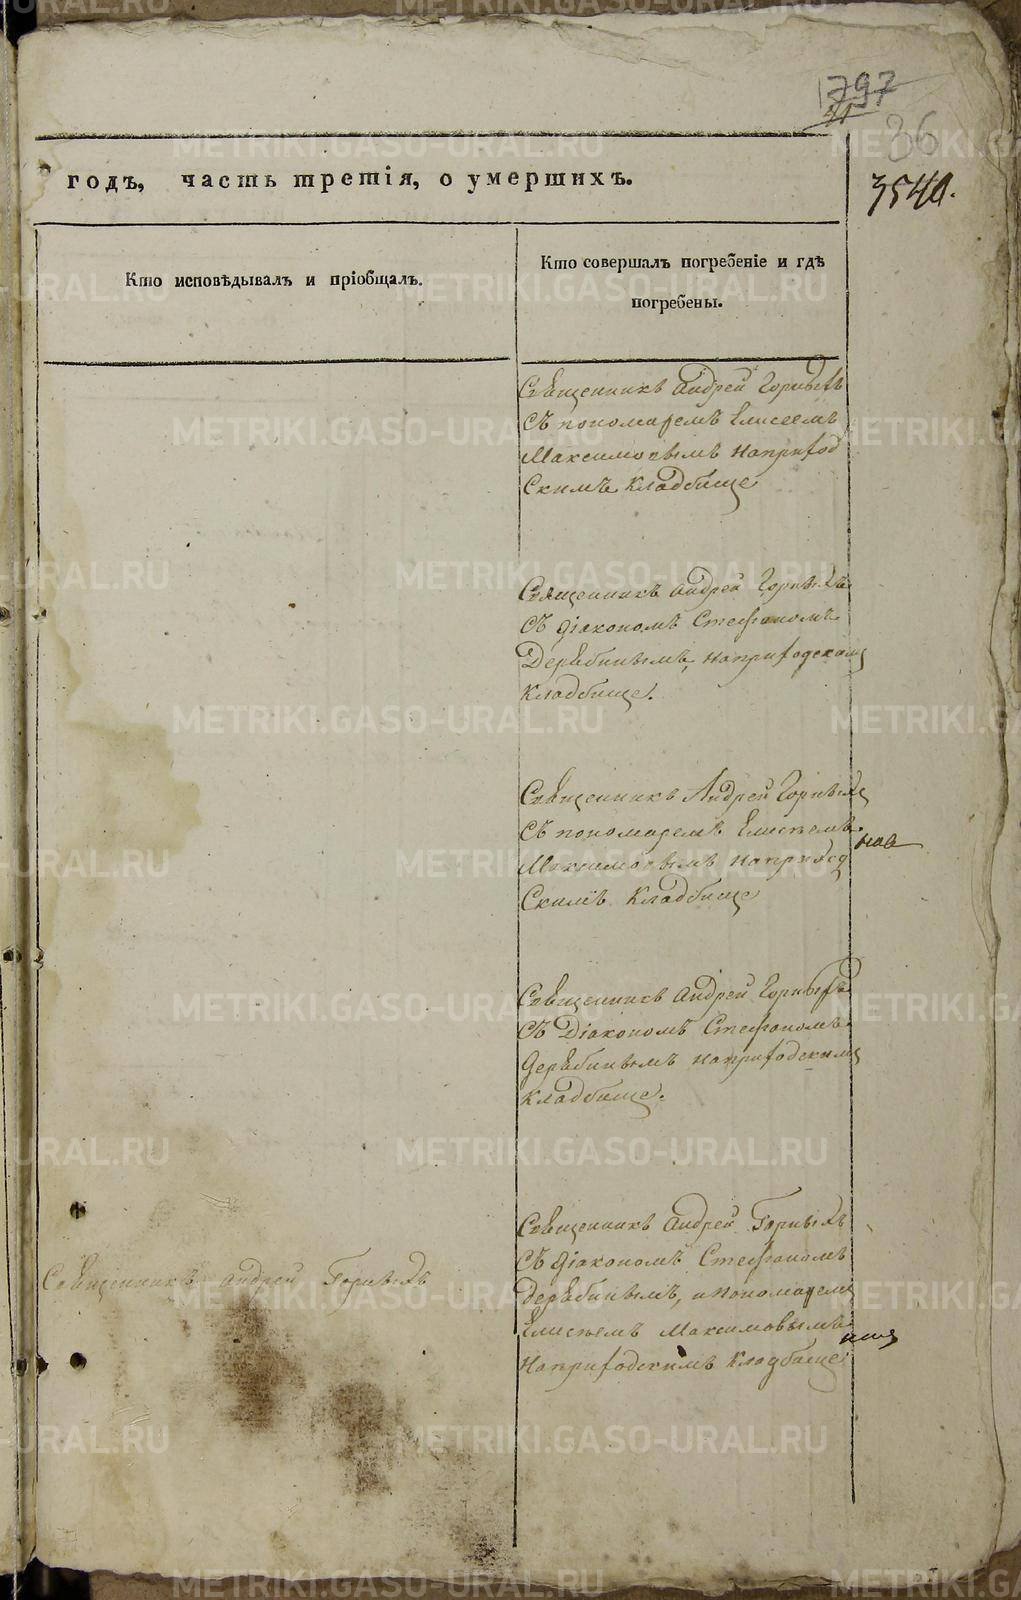 1797
36
годъ, часть третія, о умершихъ.
354А.
Кто исповѣдывалъ и пріобщалъ.
Кто совершалъ погребеніе и гдѣ
погребены.
Священникъ Андрей Горныхъ
Съ пономаремъ Елисеемъ
Максимовымъ наприход
Скимъ Кладбище
Священникъ Андрей Горныхъ
Съ діакономъ Стефаномъ
Дерябинымъ, наприходскомъ
Кладбище.
Священникъ Андрей Горныхъ
Съ пономаремъ Елисѣемъ
Максимовымъ наприход
Скимъ Кладбище
Священникъ Андрей Горныхъ
Съ Діакономъ Стефаномъ
Дерябинымъ наприходскимъ
Кладбище.
Священникъ Андрей Горныхъ
Съ діакономъ Стефаномъ
Священникъ Андрей Горныхъ
Дерябинымъ, и пономаремъ
Елисѣемъ Максимовымъ
Наприходскимъ Кладбище
METRIKI.GASO-URAL.RU